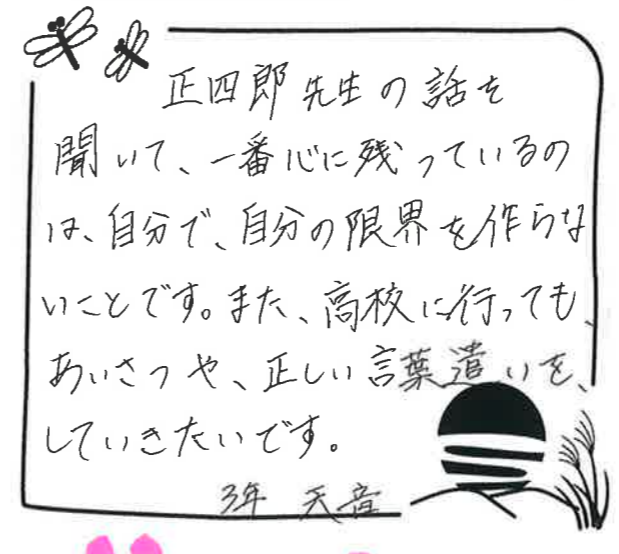 正四郎先生の話を
聞いて、一番心に残っているの
は、自分で、自分の限界を作らな
いことです。また、高校に行っても、
あいさつや、正しい言葉遣いを、
していきたいです。
3年 天音